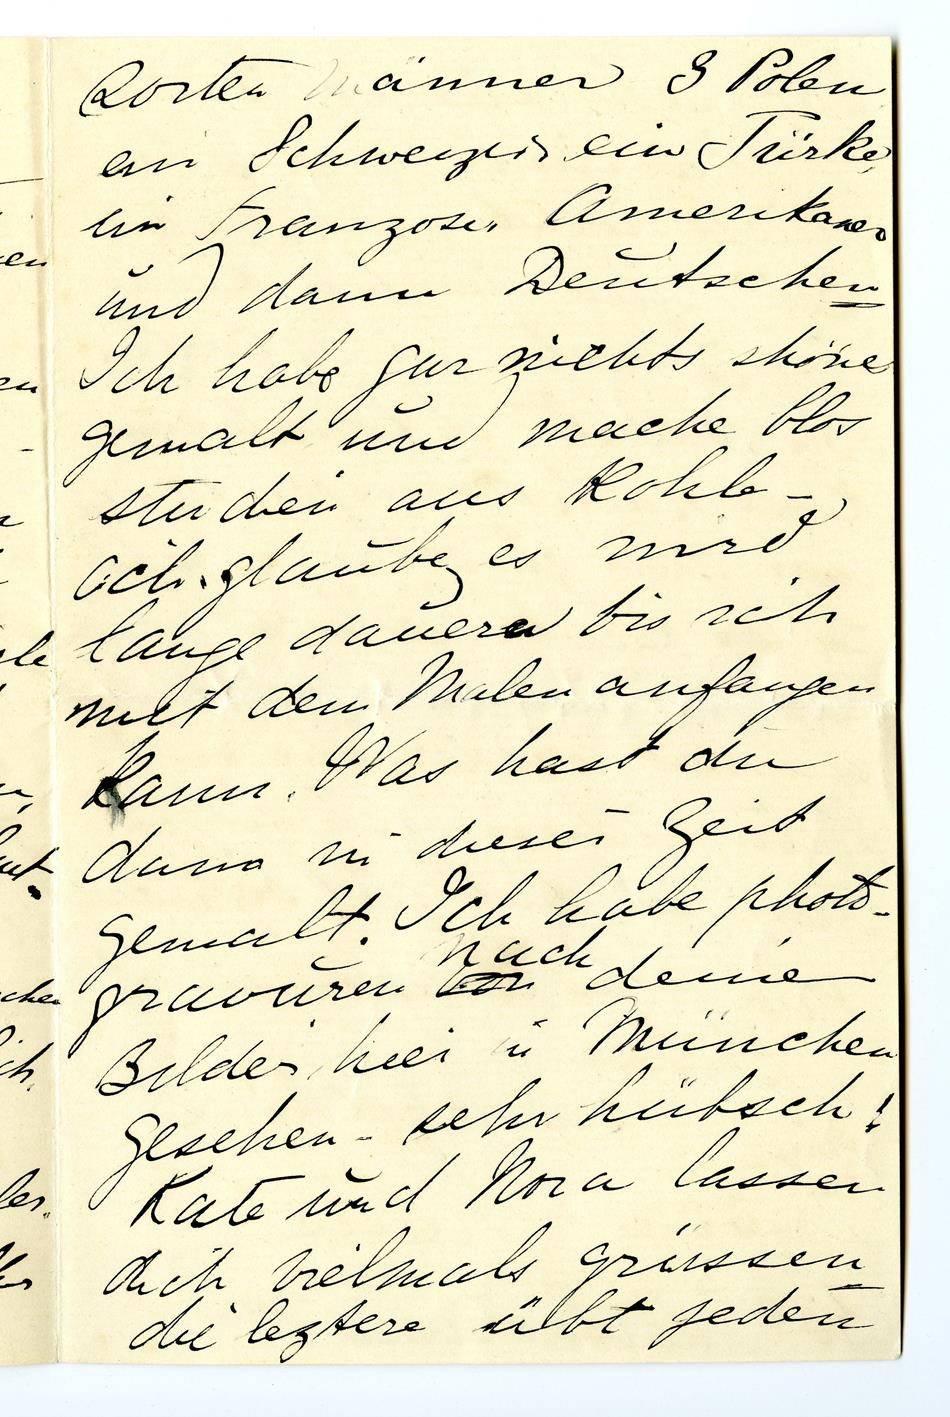 Sorten Männer 3 Polen
ein Schweizer, ein Türke,
ein Franzose, Amerikaner
und dann Deutschen
Ich habe gar nichts shöne
gemalt und mache blos
studien aus Kohle -
ich glaube es wird
lange dauern bis ich
mit dem Malen anfangen
kann. Was hast du
dann in dieser Zeit
gemalt. Ich habe photo-
gravuren nach deine
Bilder hier in München
gesehen - sehr hübsch!
Kate und Nora lassen
dich vielmals grüssen
die leztere übt jeden